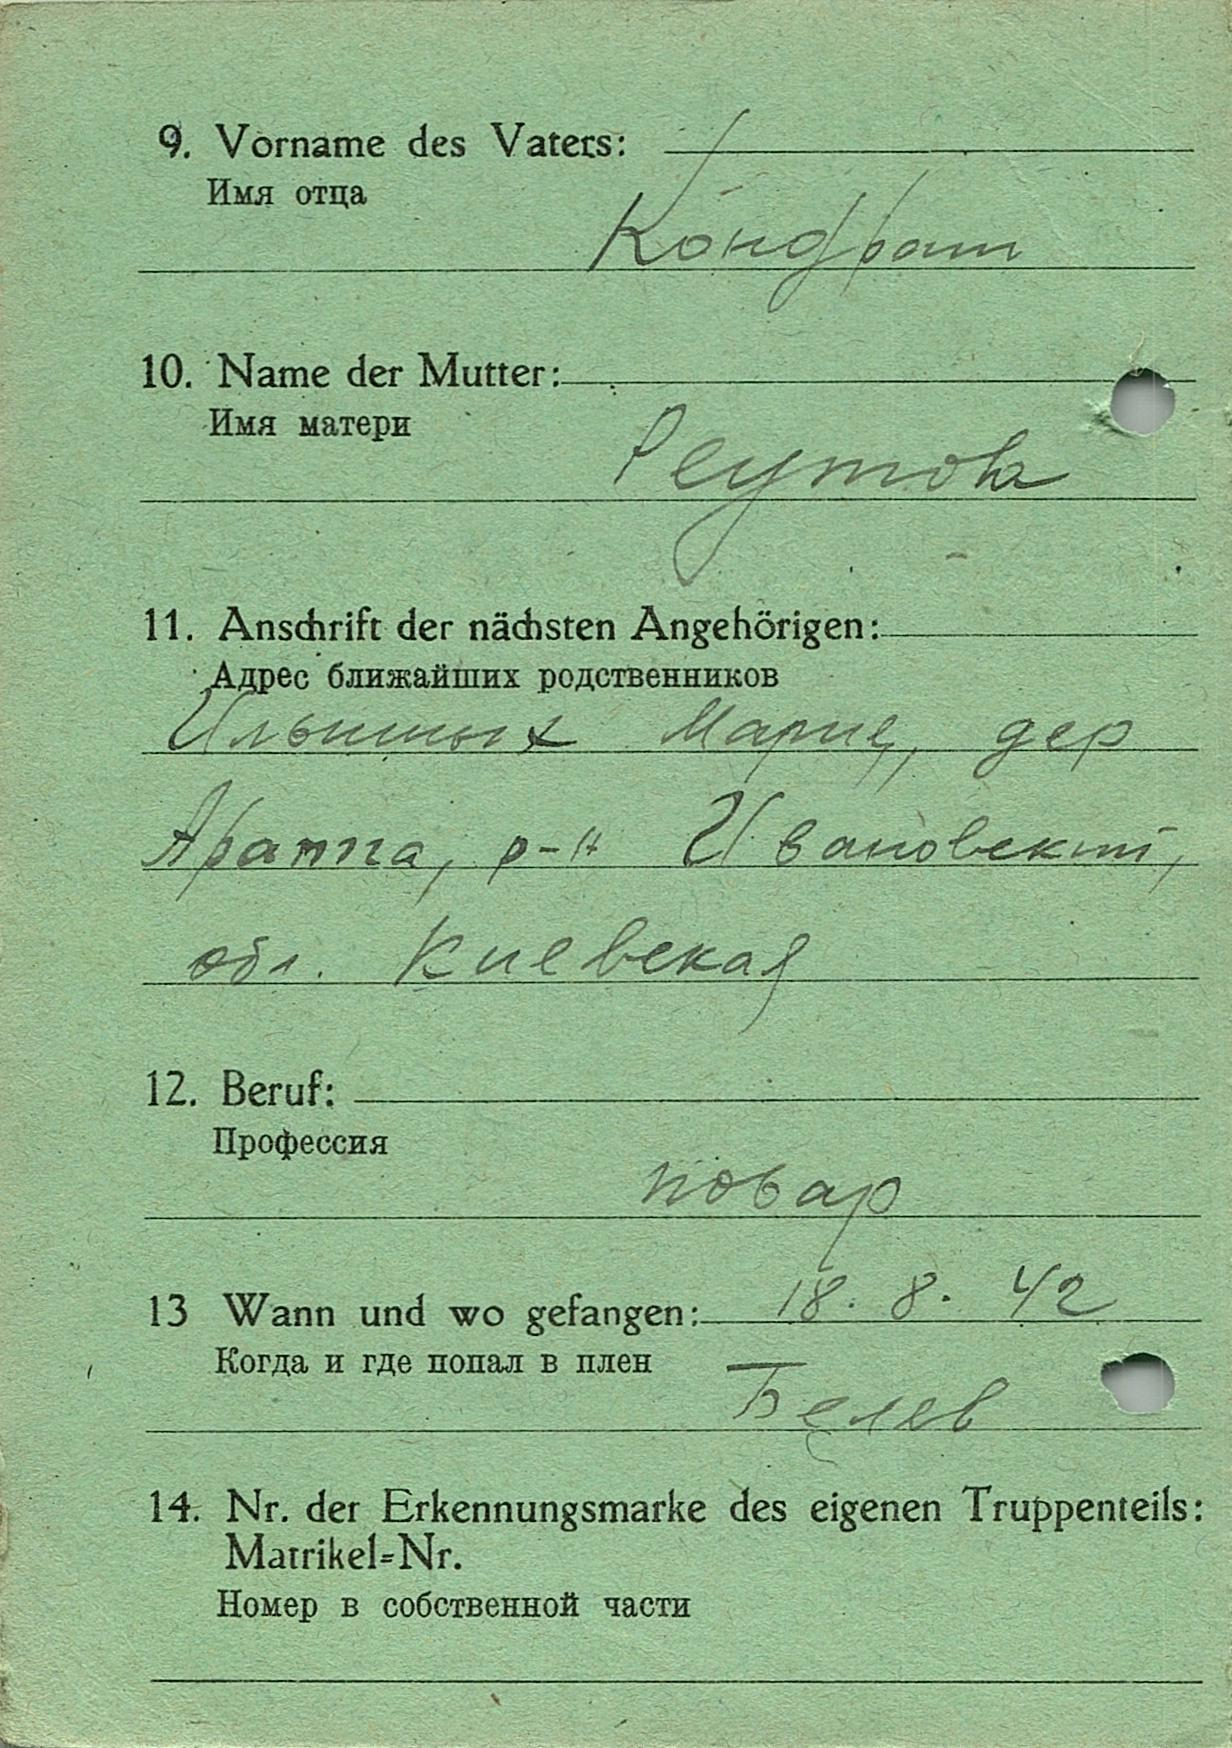 9. Vorname des Vaters:
Имя отца
Кондрат
10. Name der Mutter:
Имя матери
Реутова
11. Anschrift der nächsten Angehörigen:
Адрес ближайших родственников
Ильиных Мария, дер
р-н Ивановский,
обл. Киевская
12. Beruf:
Профессия
повар
13 Wann und wo gefangen: 18. 8. 42
Когда и где попал в плен
Белев
14. Nr. der Erkennungsmarke des eigenen Truppenteils:
Matrikel=Nr.
Номер в собственной части